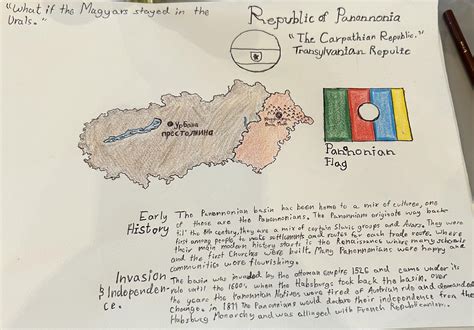 "What if the Magyars stayed in the
Urals."
Republic of Panonnonia
"The Carpathian Republic."
Transylvanian Repulic
Урбаза
престолкина
Pannonian
Flag
Early
History
The Panonnonian basin has been home to a mix of cultures, one
of those are the Panonnonians. The Panonnians originate way back
till' the 8th century, they are a mix of certain Slavic groups and Avars. They were
first among people to make settlements and routes for each trade route, where
their main modern history starts is the Renaissance where many schools
and the first Churches were built. Many Panonnonians were happy and
communities were flourishing.
Invasion
& Independen-
ce.
The basin was invaded by the ottoman Empire 1526 and came under its
rule until the 1600s, when the Habsburgs took back the basin. over
the years the Panonnian Natives were tired of Austrian rule and demanded
change. in 1871 The Panonnians would declare their independence from the
Habsburg Monarchy and was allinged with French Republicanism.